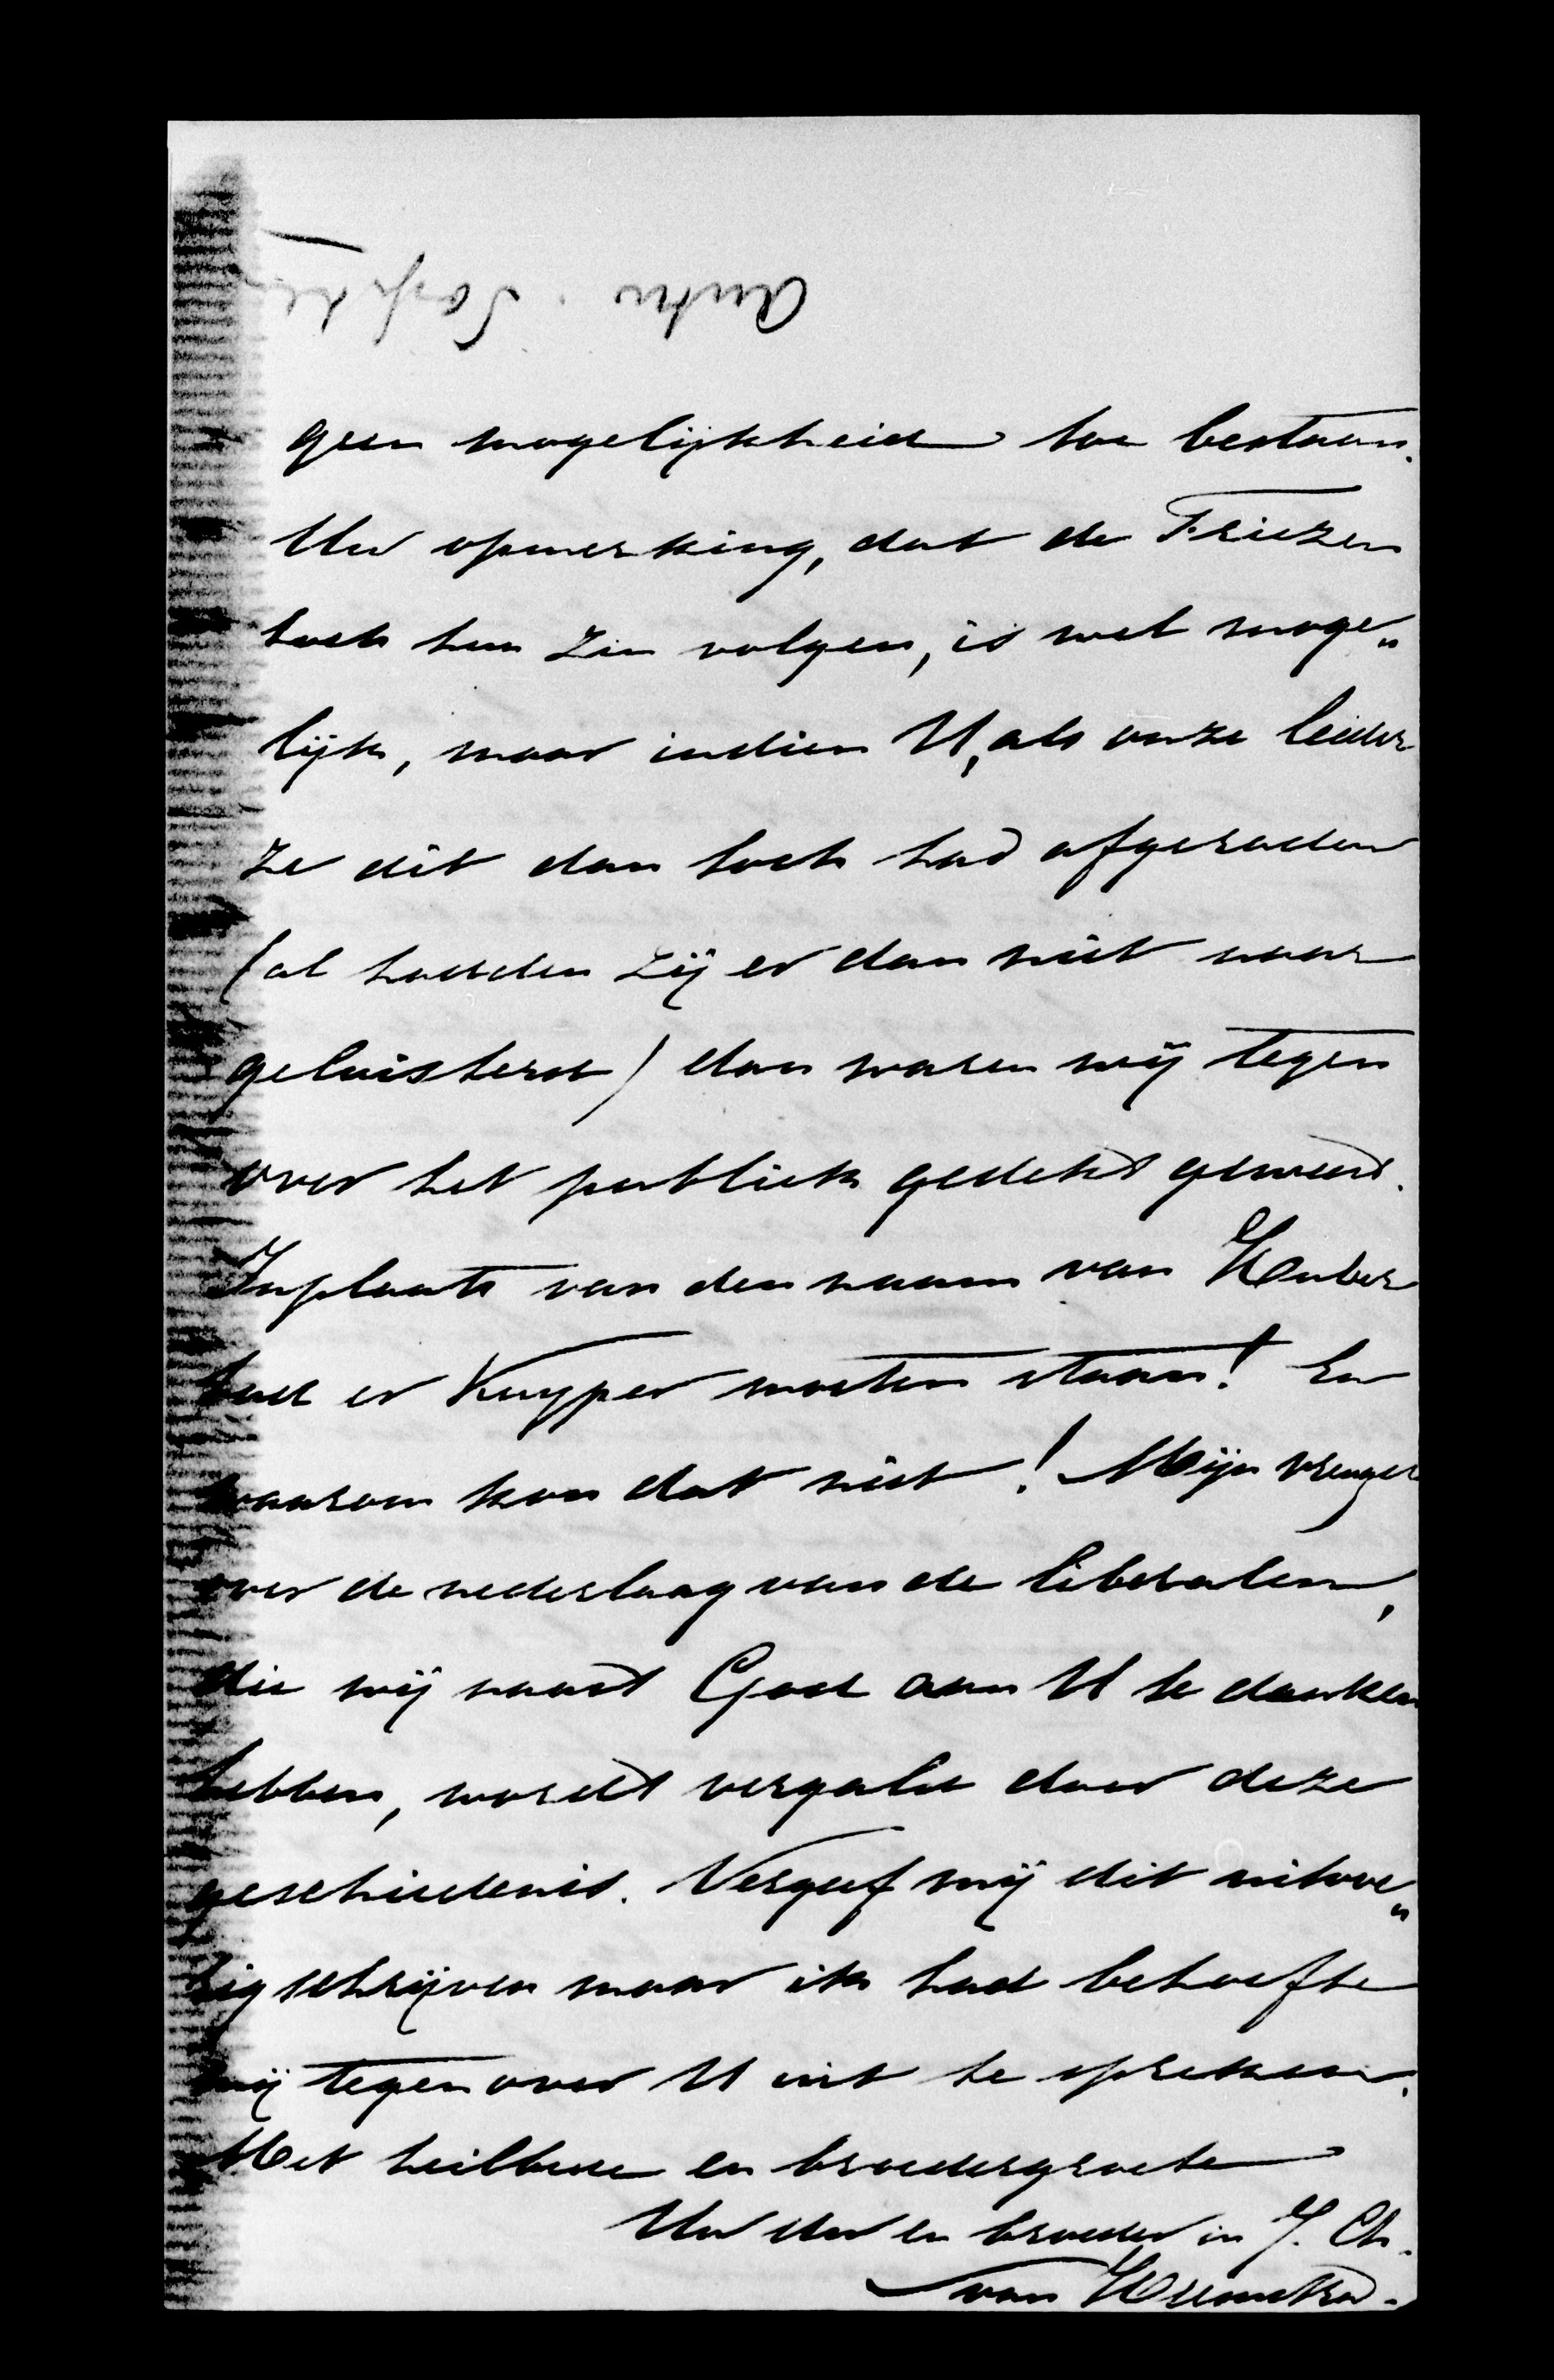 Antir.
geen mogelijkheid toe bestaan.
Uw opmerking, dat de Friezen
toch hun zin volgen, is wel moge„
lijk, maar indien U, als onze leider
ze dit dan toch had afgeraden
(al hadden zij er dan niet naar
geluisterd) dan waren wij tegen
over het publiek gedekt geweest.
Inplaats van den naam van Huber
had er Kuyper moeten staan! En
waarom kon dat niet! Mijn vreugde
over de nederlaag van de liberalen,
die wij naast God aan U te danken
hebben, wordt vergald door deze
geschiedenis. Vergeef mij dit uitvoe„
rig schrijven maar ik had behoefte
mij tegenover U uit te spreken.
Met heilbede en broedergroete
Uw dw en broeder in J. Ch.
van Heemstra.